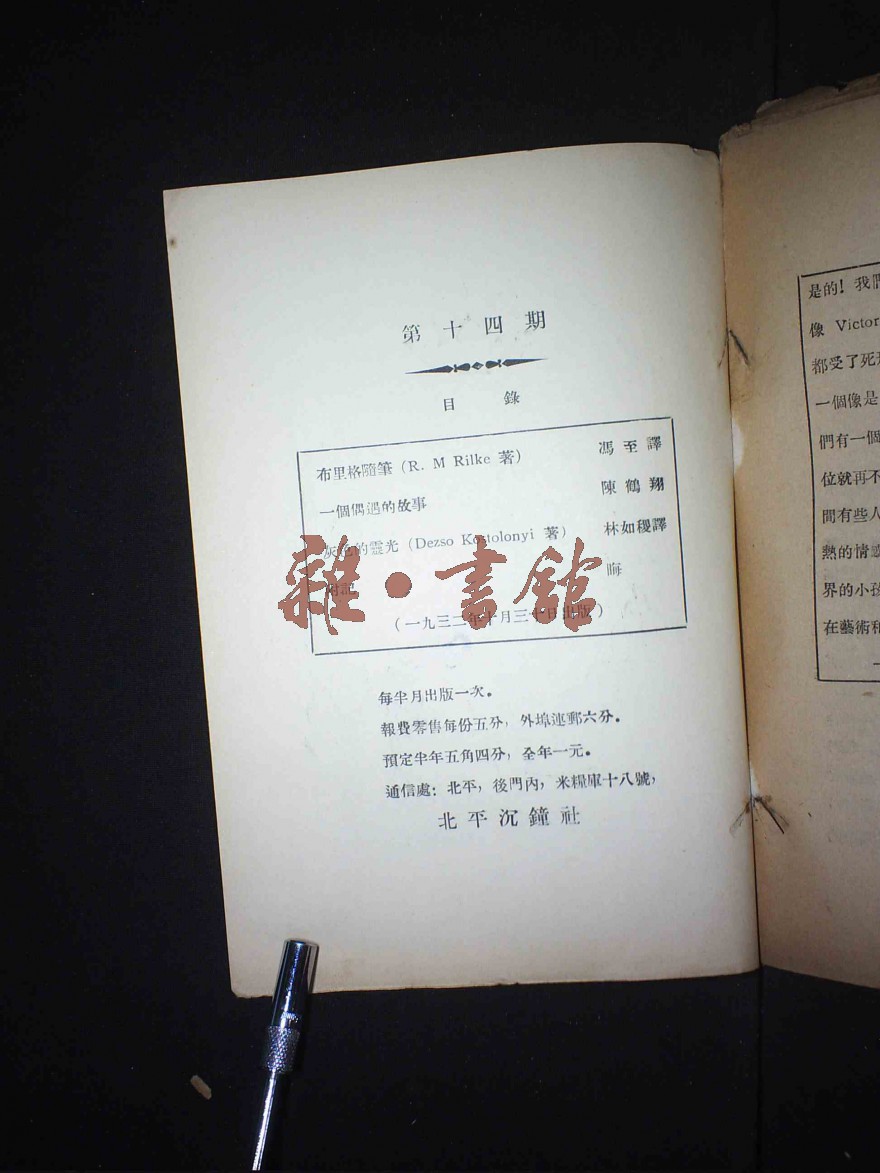 第十四期
目錄
布里格隨筆 (R. M Rilke 著) 馮至譯
一個偶遇的故事 陳鶴翔
灰色的靈光 (Dezso Kostolonyi 著) 林如稷譯
附記 晦
(一九三二年十月三十日出版)
每半月出版一次。
報費零售每份五分,外埠連郵六分。
預定半年五角四分,全年一元。
通信處:北平,後門內,米糧庫十八號,
北平沉鐘社
雜·書館
是的!我們
像 Victor
都受了死
一個像是
們有一個
位就再不
間有些人
熱的情感
界的小孩
在藝術和